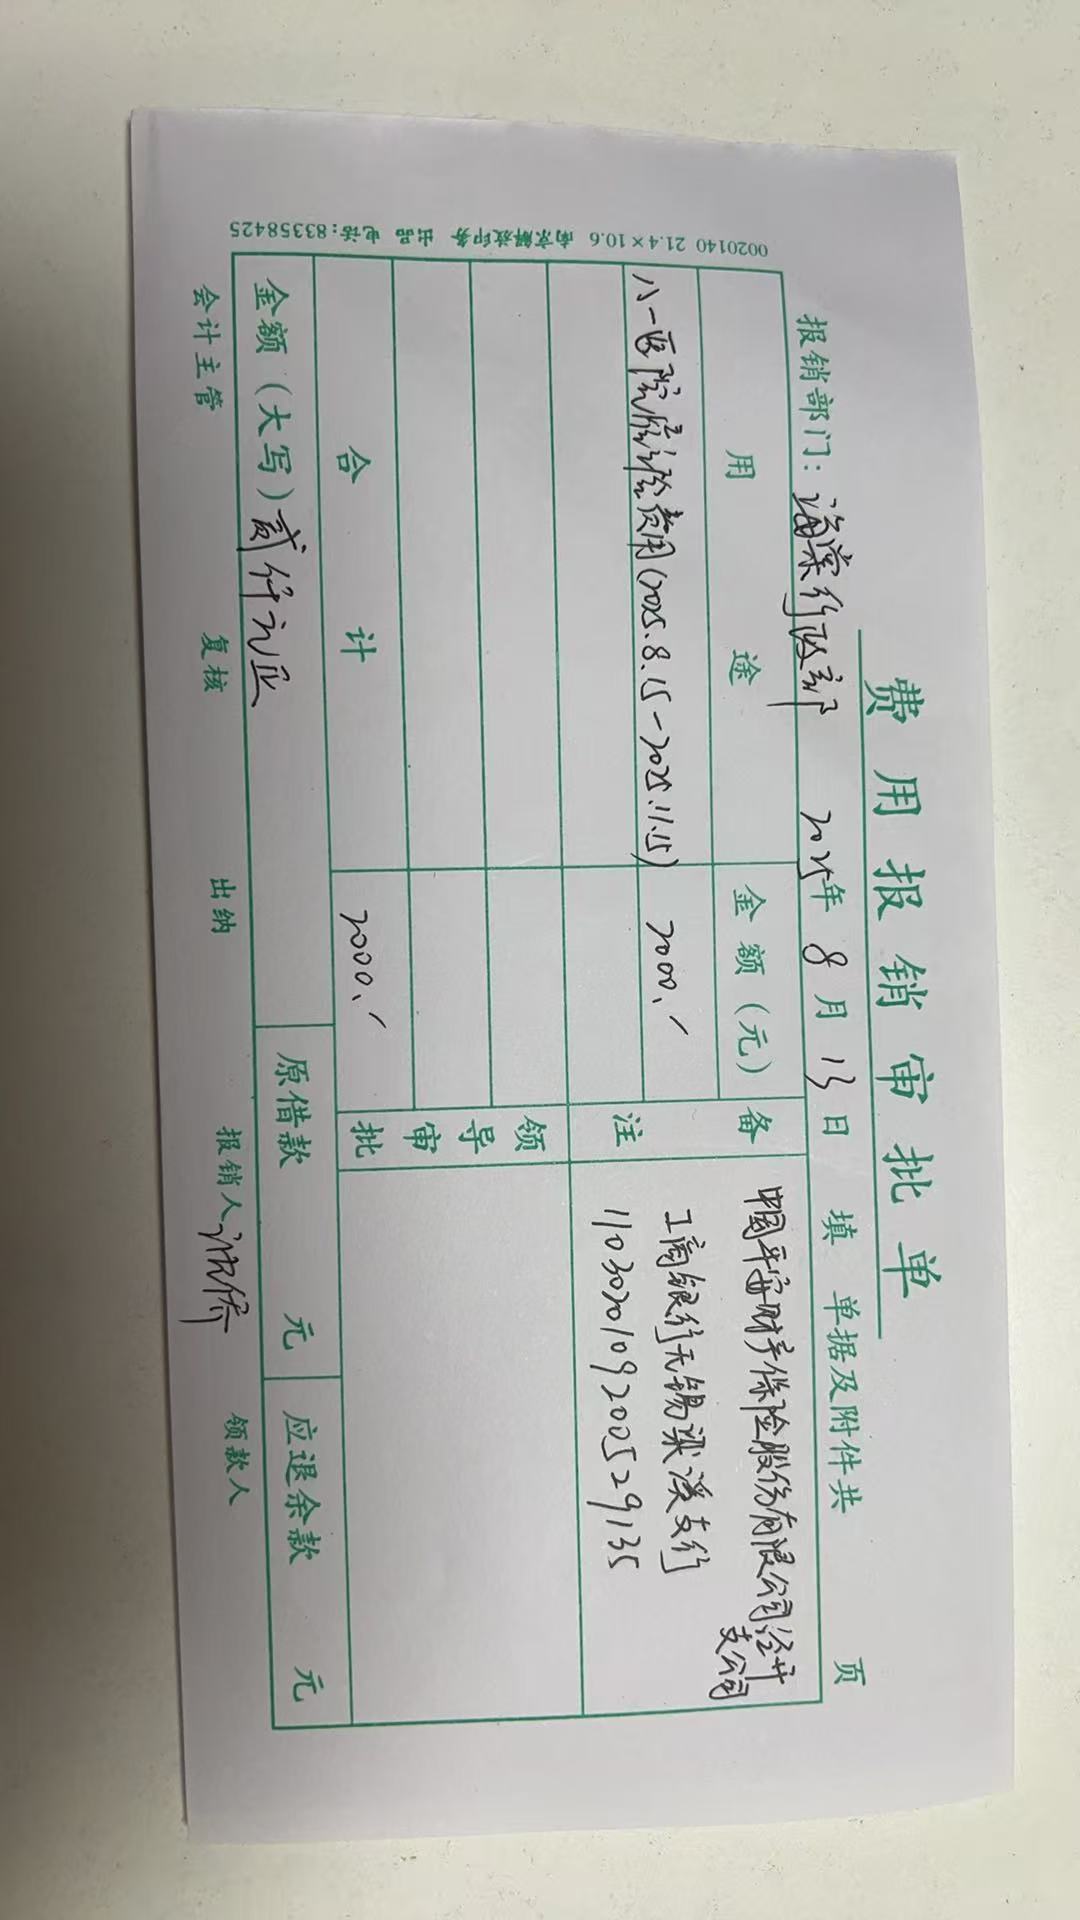 费用报销审批单
报销部门：海棠行政部 2025年8月13日填 单据及附件共 页
用途 金额（元） 备注
八一医院履约保险费用(2025.8.15-2025.11.15) 2000.
中国平安财产保险股份有限公司经开支公司
工商银行无锡梁溪支行
1103020109200529135
合计 2000.
领导审批
金额（大写）贰仟元正 原借款 元 应退余款 元
会计主管 复核 出纳 报销人 领款人
0020140 21.4×10.6 南京解放印务 出品 电话:83358425